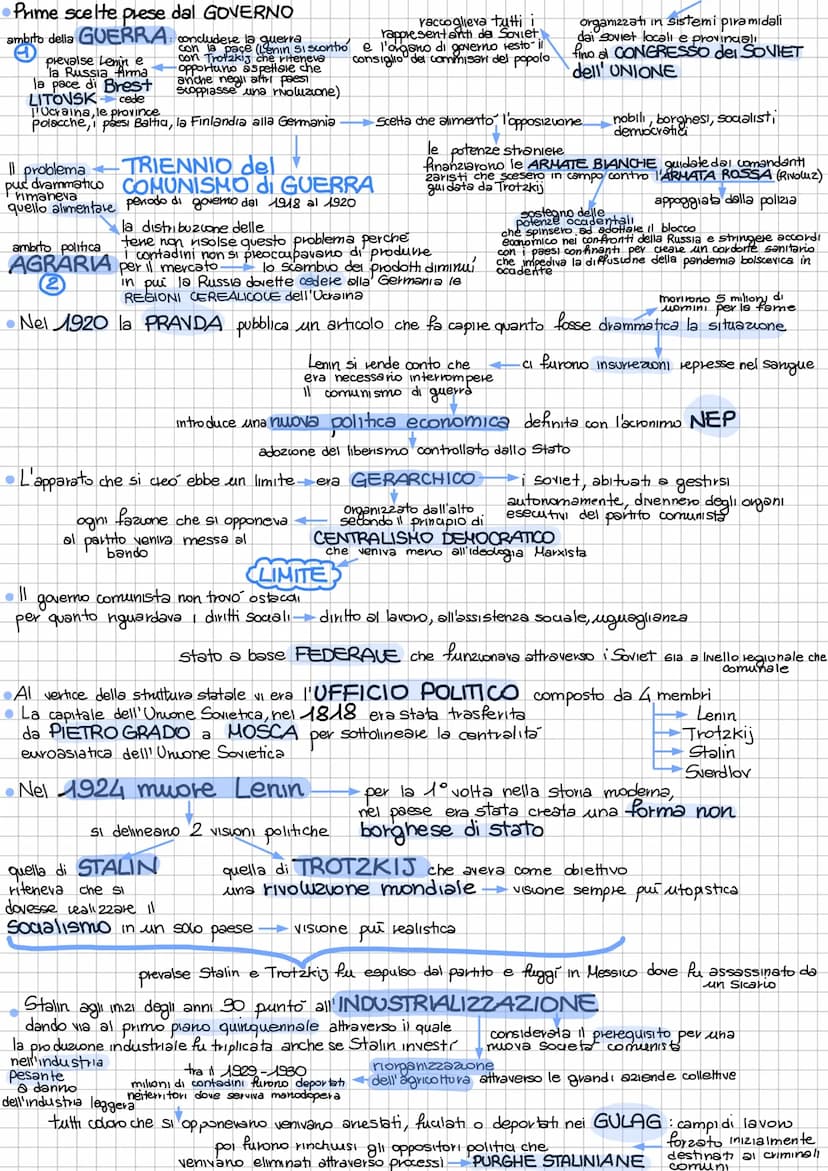 Prime scelte prese dal GOVERNO
ambito della GUERRA: concludere la guerra
con la pace (Lenin si scontrò
con Trotzkij che riteneva
opportuno aspettare che
anche negli altri paesi
scoppiasse una rivoluzione)
1
prevalse Lenin e
la Russia firma
la pace di Brest
LITOVSK → cede
l'Ucraina, le province
polacche, i paesi Baltici, la Finlandia alla Germania → scelta che alimentò l'opposizione → nobili, borghesi, socialisti
democratici
raccoglieva tutti i
rappresentanti da Soviet,
e l'organo di governo restò il
consiglio dei commissari del popolo
organizzati in sistemi piramidali
dai soviet locali e provinciali
fino al CONGRESSO dei SOVIET
dell'UNIONE
le potenze straniere
finanziarono le ARMATE BIANCHE guidate dai comandanti
zaristi che scesero in campo contro l'ARMATA ROSSA (Rivoluz)
guidata da Trotzkij
appoggiata dalla polizia
Il problema
più drammatico
rimaneva
quello alimentare
TRIENNIO del
COMUNISMO di GUERRA
periodo di governo dal 1918 al 1920
sostegno delle
potenze occidentali
che spinsero ad adottare il blocco
economico nei confronti della Russia e stringere accordi
con i paesi confinanti per creare un cordone sanitario
che impediva la diffusione della pandemia bolscevica in
occidente
ambito politica
AGRARIA
2
la distribuzione delle
terre non risolse questo problema perché
i contadini non si preoccupavano di produrre
per il mercato → lo scambio dei prodotti diminuì
in più la Russia dovette cedere alla Germania le
REGIONI CEREALICOLE dell'Ucraina
morirono 5 milioni di
uomini per la fame
Nel 1920 la PRAVDA pubblica un articolo che fa capire quanto fosse drammatica la situazione
ci furono insurrezioni represse nel sangue
Lenin si rende conto che
era necessario interrompere
il comunismo di guerra
introduce una nuova politica economica definita con l'acronimo NEP
adozione del liberismo controllato dallo Stato
L'apparato che si creò ebbe un limite → era GERARCHICO → i soviet, abituati a gestirsi
autonomamente, divennero degli organi
esecutivi del partito comunista
organizzato dall'alto
secondo il principio di
CENTRALISMO DEMOCRATICO
che veniva meno all'ideologia Marxista
ogni fazione che si opponeva
al partito veniva messa al
bando
LIMITE
Il governo comunista non trovò ostacoli
per quanto riguardava i diritti sociali → diritto al lavoro, all'assistenza sociale, uguaglianza
stato a base FEDERALE che funzionava attraverso i Soviet sia a livello regionale che
comunale
Al vertice della struttura statale vi era l'UFFICIO POLITICO composto da 4 membri
Lenin
Trotzkij
Stalin
Sverdlov
La capitale dell'Unione Sovietica, nel 1818 era stata trasferita
da PIETROGRADO a MOSCA per sottolineare la centralità
euroasiatica dell'Unione Sovietica
Nel 1924 muore Lenin → per la 1° volta nella storia moderna,
nel paese era stata creata una forma non
borghese di stato
si delineano 2 visioni politiche
quella di STALIN
riteneva che si
dovesse realizzare il
socialismo in un solo paese → visione più realistica
quella di TROTZKIJ che aveva come obiettivo
una rivoluzione mondiale → visione sempre più utopistica
prevalse Stalin e Trotzkij fu espulso dal partito e fuggì in Messico dove fu assassinato da
un sicario
Stalin agli inizi degli anni 30 puntò all'INDUSTRIALIZZAZIONE
dando via al primo piano quinquennale attraverso il quale
la produzione industriale fu triplicata anche se Stalin investì
nell'industria
pesante
a danno
dell'industria leggera
considerata il prerequisito per una
nuova società comunista
riorganizzazione
dell'agricoltura attraverso le grandi aziende collettive
tra il 1929-1930
milioni di contadini furono deportati
nei territori dove serviva manodopera
tutti coloro che si opponevano venivano arrestati, fucilati o deportati nei GULAG: campi di lavoro
forzato inizialmente
destinati ai criminali
comuni
poi furono rinchiusi gli oppositori politici che
venivano eliminati attraverso processi → PURGHE STALINIANE